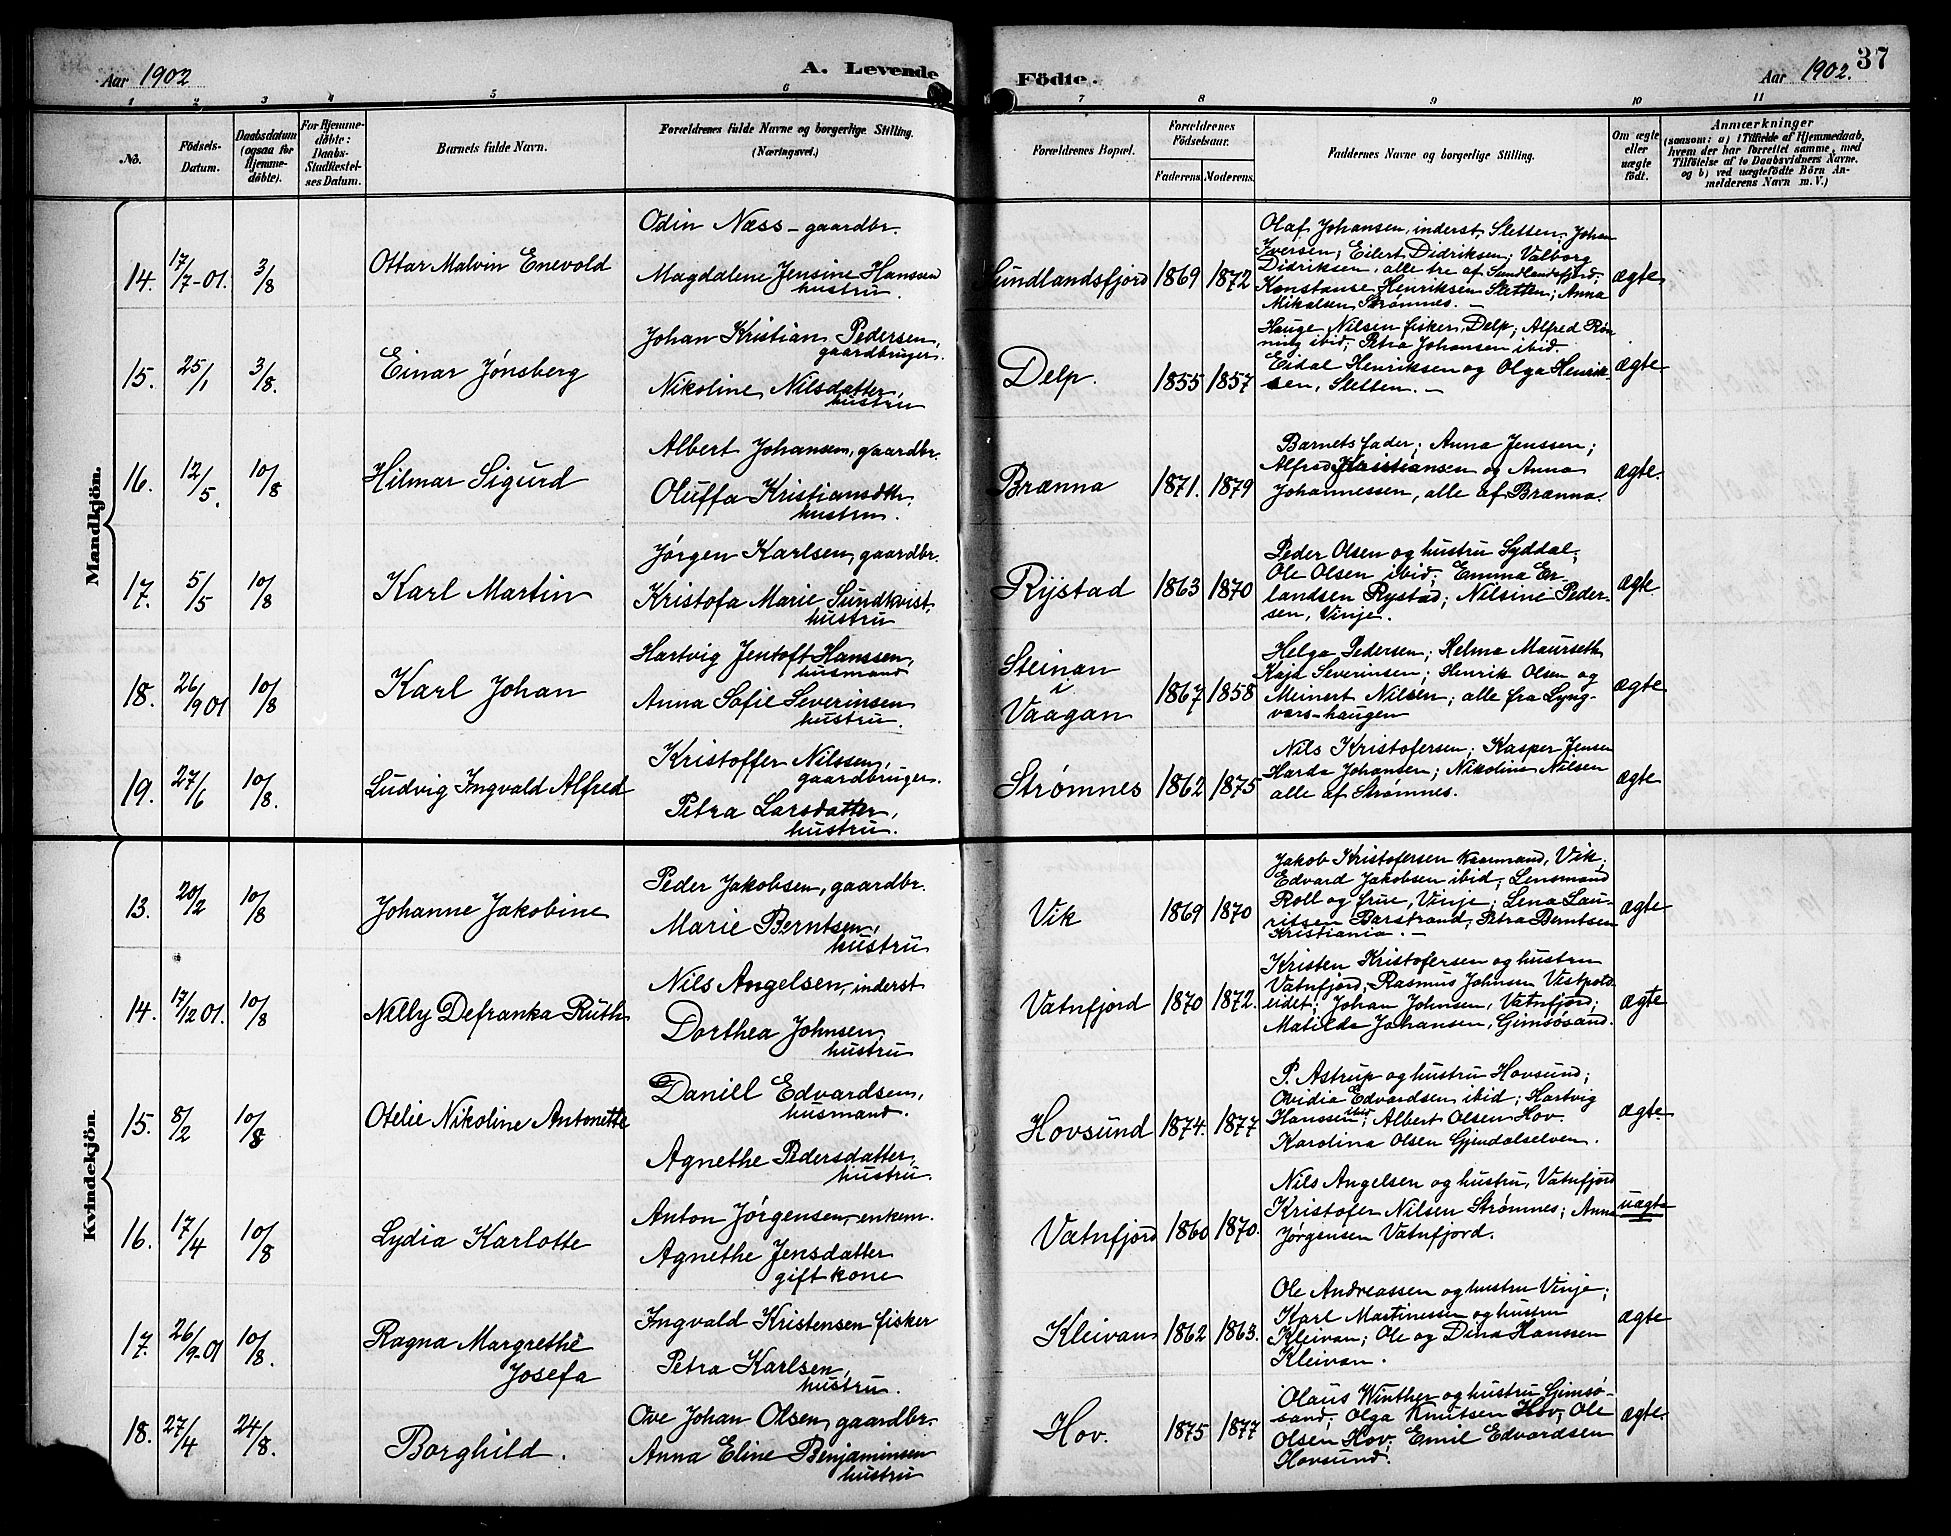 Aar 1902
A. Levende Födte.
Aar 1902.
37
1 2 3 4 5 6 7 8 9 10 11
No.
Födsels-
Datum.
Daabsdatum
(ogsaa for
Hjemme-
döbte).
For Hjemme-
döbte:
Daabs-
Stadfæstel-
ses Datum.
Barnets fulde Navn.
Forældrenes fulde Navne og borgerlige Stilling.
(Næringsvei.)
Forældrenes Bopæl.
Forældrenes
Födselsaar.
Faderens. Moderens.
Faddernes Navne og borgerlige Stilling.
Om ægte
eller
uægte
födt.
Anmærkninger
(saasom: a) i Tilfælde af Hjemmedaab,
hvem der har forrettet samme, med
Tilföielse af to Daabsvidners Navne,
og b) ved uægtefödte Börn An-
melderens Navn m. V.)
Mandkjön.
14. 17/7-01. 3/8
Ottar Malvin Enevold
Odin Næss - gaardbr.
Magdalene Jensine Hanssen
hustru.
Sundlandsfjord 1869 1872
Olaf Johansen, inderst, Sletten; Johan
Iversen; Eilert Didriksen; Valborg
Didriksen, alle tre af Sundlandsfjord;
Konstanse Henriksen Sletten; Anna
Mikalsen Strømnes. -
ægte
15. 25/1 3/8.
Einar Jønsberg
Johan Kristian Pedersen,
gaardbruger.
Nikoline Nilsdatter,
hustru
Delp. 1855 1857
Hauge Nilsen fisker, Delp; Alfred Røn
ning ibid; Petra Johansen ibid.
Eidal Henriksen og Olga Henrik-
sen, Sletten. -
ægte
16. 12/5. 10/8
Hilmar Sigurd
Albert Johansen, gaardbr.
Oluffa Kristiansdtr,
hustru.
Brænna 1871. 1879
Barnets fader; Anna Jenssen;
Alfred Kristiansen og Anna
Johannessen, alle af Brænna.
ægte.
17. 5/5 10/8
Karl Martin
Jørgen Karlsen, gaardbr.
Kristofa Marie Sundkvist,
hustru
Rystad 1863 1870
Peder Olsen og hustru Syddal;
Ole Olsen ibid; Emma Er-
landsen Rystad; Nilsine Peder-
sen, Vinje.
ægte
18. 26/9 01 10/8
Karl Johan
Hartvig Jentoft Hanssen,
husmand
Anna Sofie Severinsen
hustru.
Steinan
i
Vaagan 1867 1858
Helga Pedersen; Helma Maurseth
Kajd Severinsen; Henrik Olsen og
Meinert Nilsen; alle fra Lyng-
værs-haugen
ægte
19. 27/6 10/8.
Ludvig Ingvald Alfred
Kristoffer Nilssen,
gaardbruger.
Petra Larsdatter,
hustru.
Strømnes 1862 1875
Nils Kristofersen; Kasper Jensen
Harda Johansen; Nikoline Nilsen
alle af Strømnes.
ægte
Kvindekjön.
13. 20/2 10/8
Johanne Jakobine
Peder Jakobsen, gaardbr.
Marie Berntsen,
hustru
Vik 1869 1870
Jakob Kristofersen kaarmand, Vik;
Edvard Jakobsen ibid; Lensmand
Roll og frue, Vinje; Lena Lau-
ritsen Barstrand; Petra Berntsen
Kristiania. -
ægte
14. 17/12 01. 10/8
Nelly Defranka Ruth
Nils Angelsen, inderst
Dorthea Johnsen
hustru
Vatnfjord 1870 1872.
Kristen Kristofersen og hustru
Vatnfjord; Rasmus Johnsen Vestpold
eidet; Johan Johnsen, Vatnfjord;
Matilde Johansen, Gimsøsand.
ægte
15. 8/2 10/8
Otelie Nikoline Antonette
Daniel Edvardsen,
husmand.
Agnethe Pedersdatter
hustru.
Hovsund 1874. 1877
P. Astrup og hustru Hovsund;
Ovidia Edvardsen ibid; Hartvig
Hanssen ibid; Albert Olsen Hov.
Karolina Olsen Gjendalselven.
ægte.
16. 17/4 10/8
Lydia Karlotte
Anton Jørgensen, enkem.
Agnethe Jensdatter
gift kone
Vatnfjord 1860 1870.
Nils Angelsen og hustru, Vatnfjord
Kristofer Nilsen Strømnes; Anna
Jørgensen Vatnfjord.
uægte
17. 26/9-01 10/8.
Ragna Margrethe
Josefa
Ingvald Kristensen fisker
Petra Karlsen,
hustru.
Kleivan 1862 1863.
Ole Andreassen og hustru Vinje;
Karl Martinessen og hustru
Kleivan; Ole og Dina Hanssen
Kleivan.
ægte
18. 27/4 24/8.
Borghild.
Ove Johan Olsen, gaardbr.
Anna Eline Benjaminsen
hustru
Hov. 1875 1877
Olaus Winther og hustru Gimsø-
sand; Olga Knutsen Hov; Ole
Olsen Hov; Emil Edvardsen
Hovsund.
ægte.